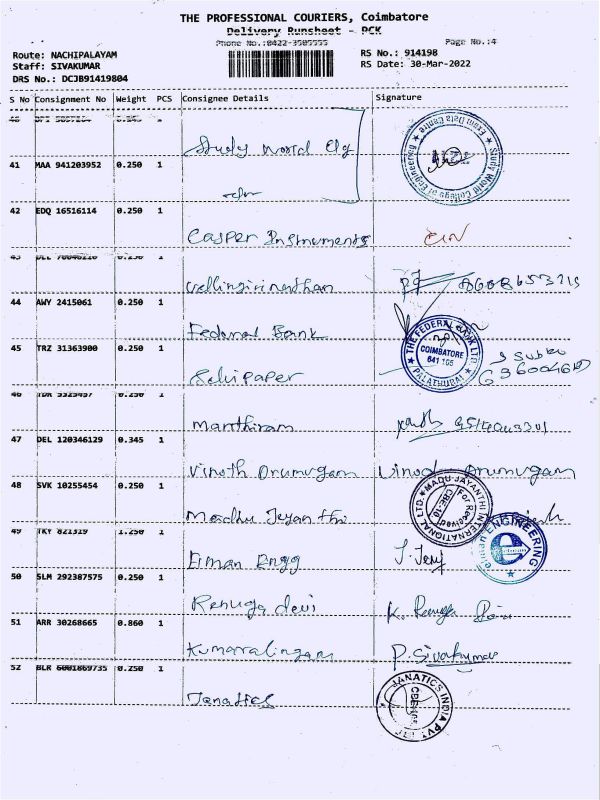 THE PROFESSIONAL COURIERS, Coimbatore
Delivery Runsheet - PCK
Phone No.:0422-3505555
Page No.:4
Route: NACHIPALAYAM
RS No.: 914198
Staff: SIVAKUMAR
RS Date: 30-Mar-2022
DRS No.: DCJB91419804
S No Consignment No Weight PCS Consignee Details Signature
40
Study World Clg
Study World College of Engineering Exam Data Centre
41 MAA 941203952 0.250 1
42 EDQ 16516114 0.250 1
Casper Instruments
43 0.250 1
Vellingirinathan
44 AWY 2415061 0.250 1
Federal Bank
THE FEDERAL BANK LTD. COIMBATORE 641 105 PALATHURAI
45 TRZ 31363900 0.250 1
Selvi paper
46 0.250 1
Manthiram
47 DEL 120346129 0.345 1
Vinoth Arumugam Vinod Arumugam
48 SVK 10255454 0.250 1
Madhu Jayanthi
MADU JAYANTHI INTERNATIONAL LTD. For Received CBE-10
49 TKY 821319 1.250 1
Elman Engg
elman ENGINEERING
50 SLM 292387575 0.250 1
Renuga devi K. Renuga Devi
51 ARR 30268665 0.860 1
Kumaralingam P. Sivakumar
52 BLR 6001869735 0.250 1
Janatics
JANATICS INDIA PVT LTD